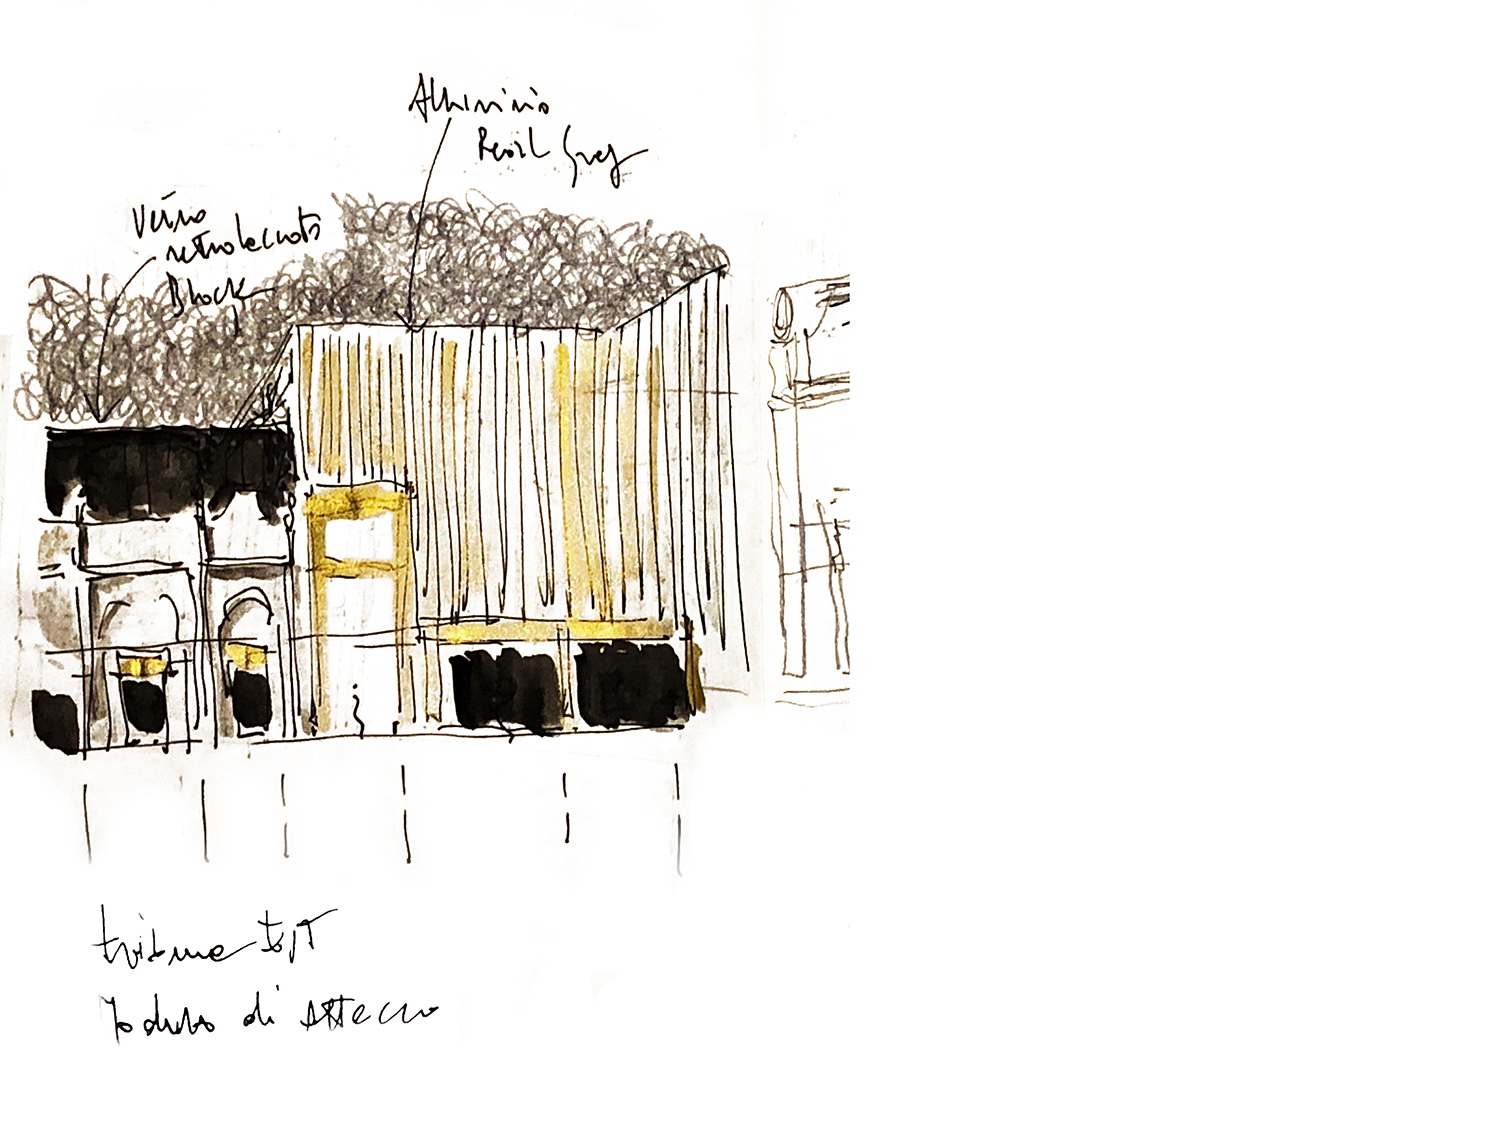 Alluminio
Pearl Grey
Vetro
retrolaccato
Black
tribuna EST
Modulo di attacco